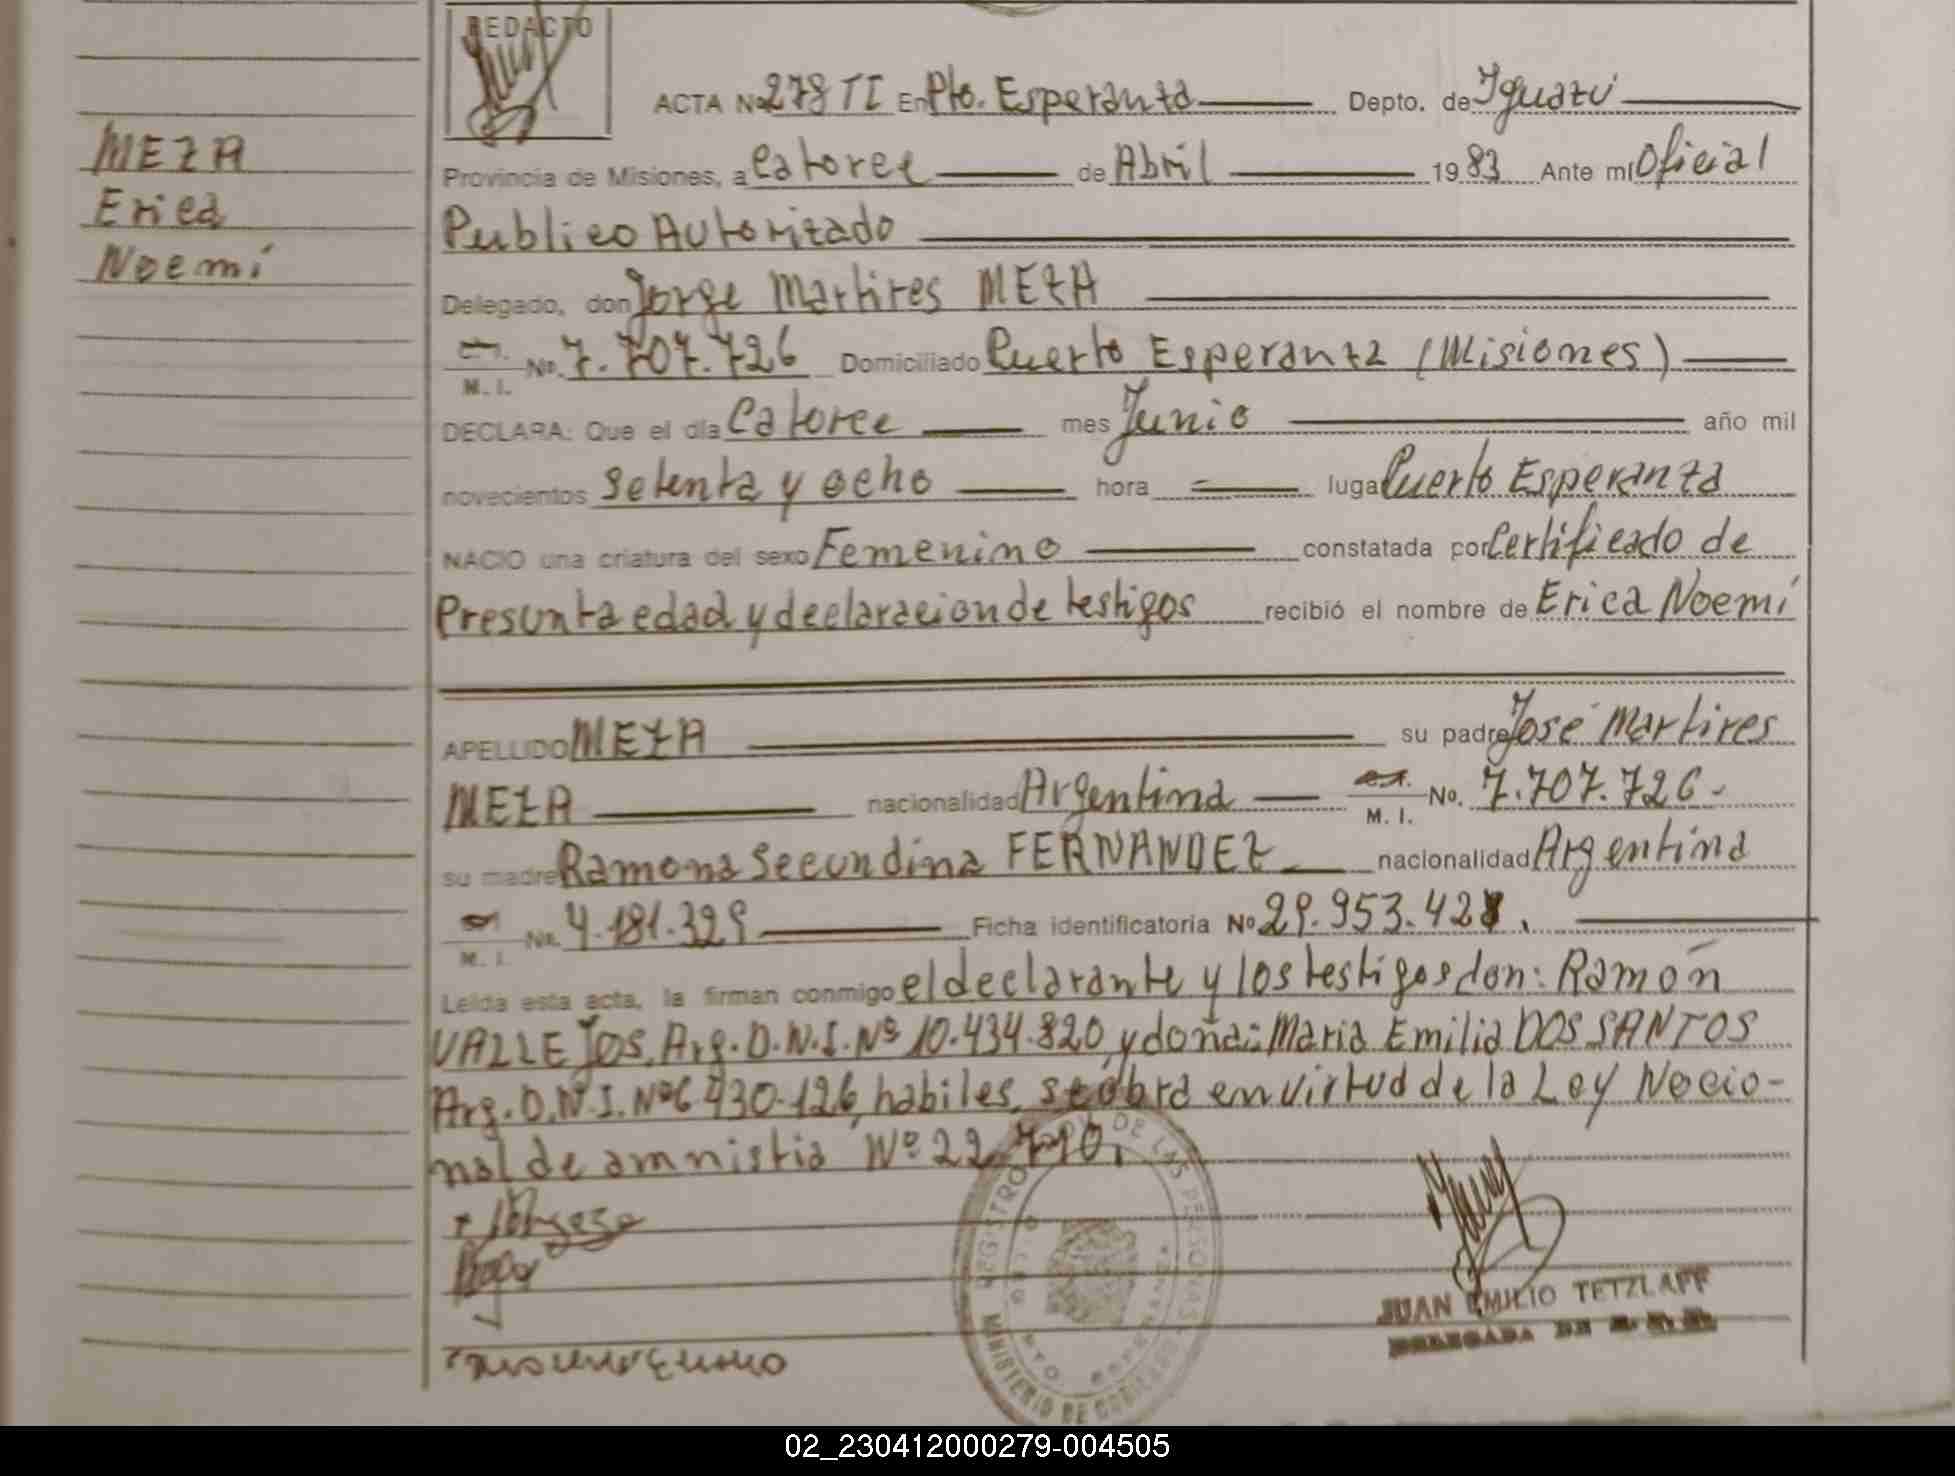 REDACTO
ACTA No 278 TI En Pto. Esperanza Depto. de Iguazú
MEZA
Erica
Noemí
Provincia de Misiones, a Catorce de Abril 19 83 Ante mí Oficial
Publico Autorizado
Delegado, don Jorge Martires MEZA
M. I. No. 7.707.726 Domiciliado Puerto Esperanza (Misiones)
DECLARA: Que el día Catorce mes Junio año mil
novecientos Setenta y ocho hora lugar Puerto Esperanza
NACIO una criatura del sexo Femenino constatada por Certificado de
Presunta edad y declaracion de testigos recibió el nombre de Erica Noemí
APELLIDO MEZA su padre José Martires
MEZA nacionalidad Argentina M. I. No. 7.707.726.
su madre Ramona Secundina FERNANDEZ nacionalidad Argentina
M. I. No. 4.181.329 Ficha identificatoria No 29.953.428.
Leída esta acta, la firman conmigo el declarante y los testigos don: Ramón
VALLEJOS, Arg. D.N.I. Nº 10.434.820, y doña: Maria Emilia DOS SANTOS
Arg. D.N.I. Nº 6.430.126, habiles, se obra en virtud de la Ley Nacio-
nal de amnistia Nº 22.710.
REGISTRO DE LAS PERSONAS
MINISTERIO DE GOBIERNO
PTO ESPERANZA
JUAN EMILIO TETZLAFF
DELEGADA DE
02_230412000279-004505